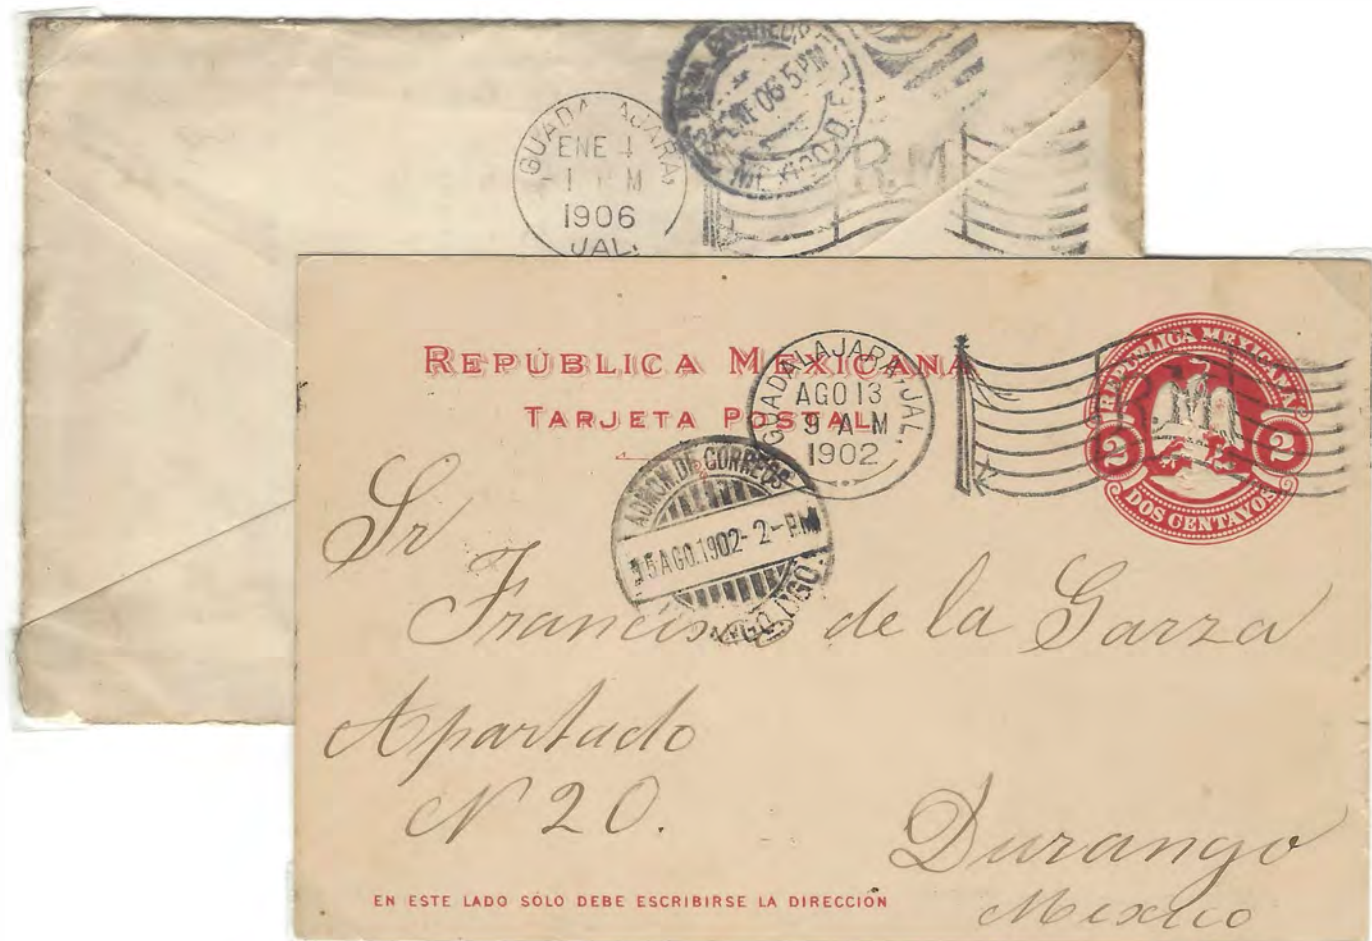 GUADALAJARA,
ENE 4
1906
JAL.
06 5 PM
MEXICO. D.F.
R.M
REPÚBLICA MEXICANA
TARJETA POSTAL
GUADALAJARA, JAL.
AGO 13
9 A M
1902
REPUBLICA MEXICANA
M
2 2
DOS CENTAVOS
ADMON. DE CORREOS
15 AGO. 1902 - 2 - P.M
DGO.
Sr
Francisco de la Garza
Apartado
N 20.
Durango
Mexico
EN ESTE LADO SÓLO DEBE ESCRIBIRSE LA DIRECCIÓN